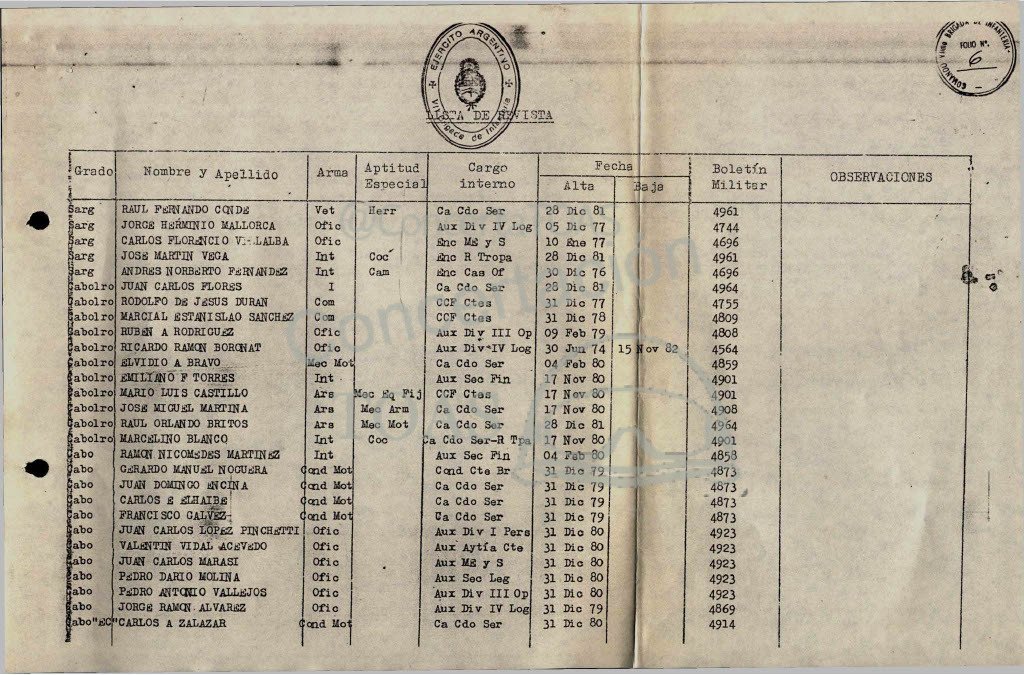 EJERCITO ARGENTINO
COMANDO VIIIva BRIGADA DE INFANTERIA
FOLIO Nº.
6
LISTA DE REVISTA
Grado Nombre y Apellido Arma Aptitud Especial Cargo interno Fecha Alta Baja Boletín Militar OBSERVACIONES
Sarg RAUL FERNANDO CONDE Vet Herr Ca Cdo Ser 28 Dic 81 4961
Sarg JORGE HERMINIO MALLORCA Ofic Aux Div IV Log 05 Dic 77 4744
Sarg CARLOS FLORENCIO VILLALBA Ofic Enc ME y S 10 Ene 77 4696
Sarg JOSE MARTIN VEGA Int Coc Enc R Tropa 28 Dic 81 4961
Sarg ANDRES NORBERTO FERNANDEZ Int Cam Enc Cas Of 30 Dic 76 4696
Cabolro JUAN CARLOS FLORES I Ca Cdo Ser 28 Dic 81 4964
Cabolro RODOLFO DE JESUS DURAN Com CCF Ctes 31 Dic 77 4755
Cabolro MARCIAL ESTANISLAO SANCHEZ Com CCF Ctes 31 Dic 78 4809
Cabolro RUBEN A RODRIGUEZ Ofic Aux Div III Op 09 Feb 79 4808
Cabolro RICARDO RAMON BORONAT Ofic Aux Div IV Log 30 Jun 74 15 Nov 82 4564
Cabolro ELVIDIO A BRAVO Mec Mot Ca Cdo Ser 04 Feb 80 4859
Cabolro EMILIANO F TORRES Int Aux Sec Fin 17 Nov 80 4901
Cabolro MARIO LUIS CASTILLO Ars Mec Eq Fij CCF Ctes 17 Nov 80 4901
Cabolro JOSE MIGUEL MARTINA Ars Mec Arm Ca Cdo Ser 17 Nov 80 4908
Cabolro RAUL ORLANDO BRITOS Ars Mec Mot Ca Cdo Ser 28 Dic 81 4964
Cabolro MARCELINO BLANCO Int Coc Ca Cdo Ser-R Tpa 17 Nov 80 4901
Cabo RAMON NICOMEDES MARTINEZ Int Aux Sec Fin 04 Feb 80 4858
Cabo GERARDO MANUEL NOGUERA Cond Mot Cond Cte Br 31 Dic 79 4873
Cabo JUAN DOMINGO ENCINA Cond Mot Ca Cdo Ser 31 Dic 79 4873
Cabo CARLOS E ELHAIBE Cond Mot Ca Cdo Ser 31 Dic 79 4873
Cabo FRANCISCO GALVEZ Cond Mot Ca Cdo Ser 31 Dic 79 4873
Cabo JUAN CARLOS LOPEZ PINCHETTI Ofic Aux Div I Pers 31 Dic 80 4923
Cabo VALENTIN VIDAL ACEVEDO Ofic Aux Aytía Cte 31 Dic 80 4923
Cabo JUAN CARLOS MARASI Ofic Aux ME y S 31 Dic 80 4923
Cabo PEDRO DARIO MOLINA Ofic Aux Sec Leg 31 Dic 80 4923
Cabo PEDRO ANTONIO VALLEJOS Ofic Aux Div III Op 31 Dic 80 4923
Cabo JORGE RAMON ALVAREZ Ofic Aux Div IV Log 31 Dic 79 4869
Cabo"EC" CARLOS A ZALAZAR Cond Mot Ca Cdo Ser 31 Dic 80 4914